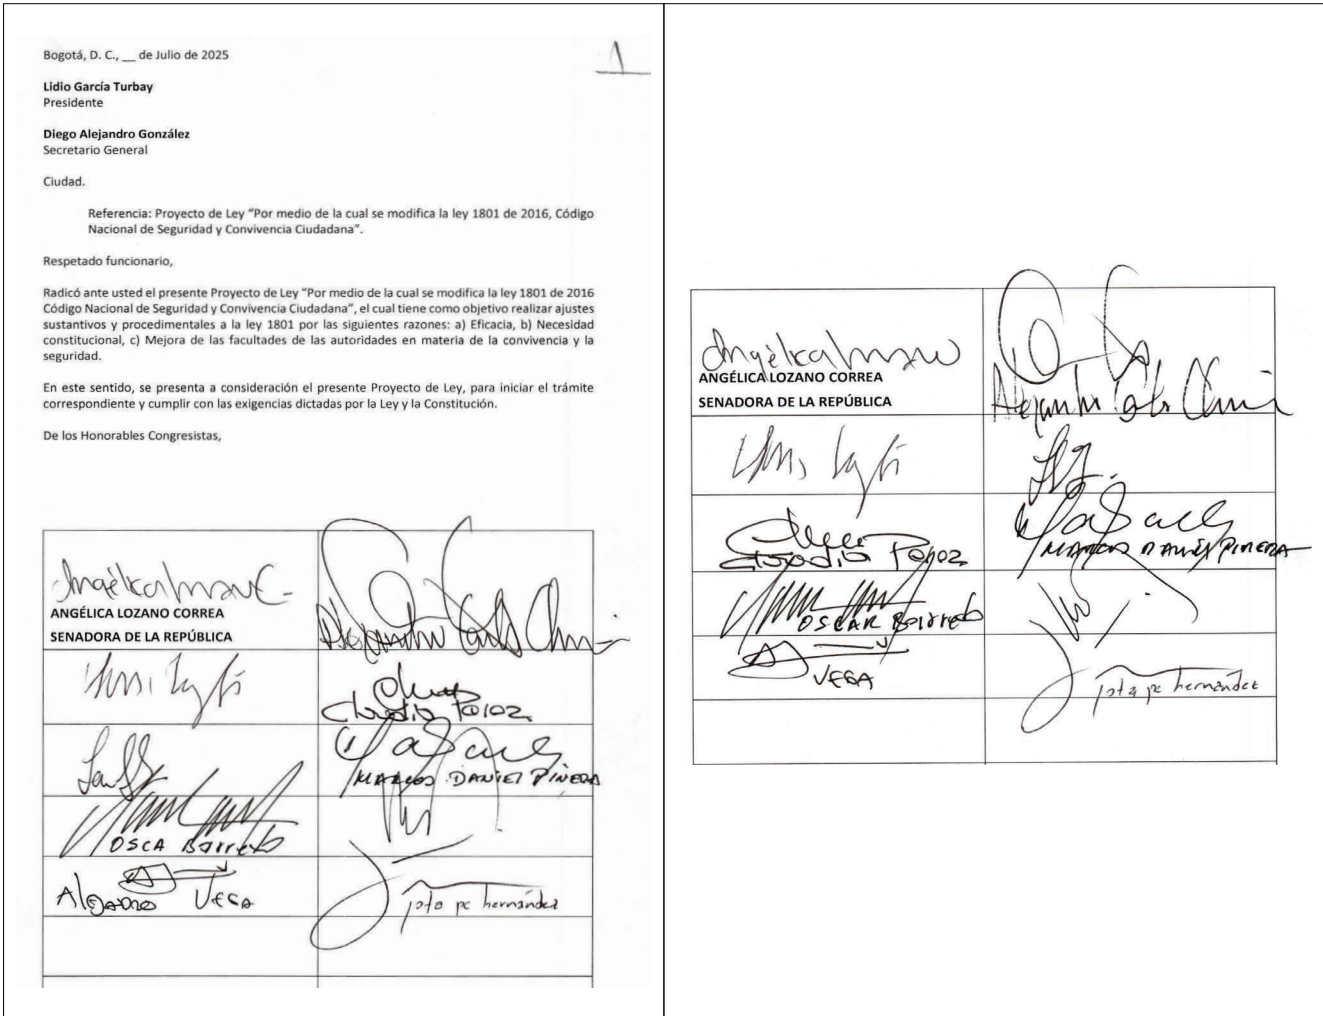 1
Bogotá, D. C., __ de Julio de 2025
Lidio García Turbay
Presidente
Diego Alejandro González
Secretario General
Ciudad.
Referencia: Proyecto de Ley “Por medio de la cual se modifica la ley 1801 de 2016, Código
Nacional de Seguridad y Convivencia Ciudadana”.
Respetado funcionario,
Radicó ante usted el presente Proyecto de Ley “Por medio de la cual se modifica la ley 1801 de 2016
Código Nacional de Seguridad y Convivencia Ciudadana”, el cual tiene como objetivo realizar ajustes
sustantivos y procedimentales a la ley 1801 por las siguientes razones: a) Eficacia, b) Necesidad
constitucional, c) Mejora de las facultades de las autoridades en materia de la convivencia y la
seguridad.
En este sentido, se presenta a consideración el presente Proyecto de Ley, para iniciar el trámite
correspondiente y cumplir con las exigencias dictadas por la Ley y la Constitución.
De los Honorables Congresistas,
ANGÉLICA LOZANO CORREA
SENADORA DE LA REPÚBLICA
Alejandro Carlos
Claudia
MARCOS DANIEL PINEDA
OSCA Barreto
VEGA
jota pe hernández
ANGÉLICA LOZANO CORREA
SENADORA DE LA REPÚBLICA
Alejandro
MARCOS DANIEL PINEDA
OSCAR Barreto
VEGA
jota pe hernández